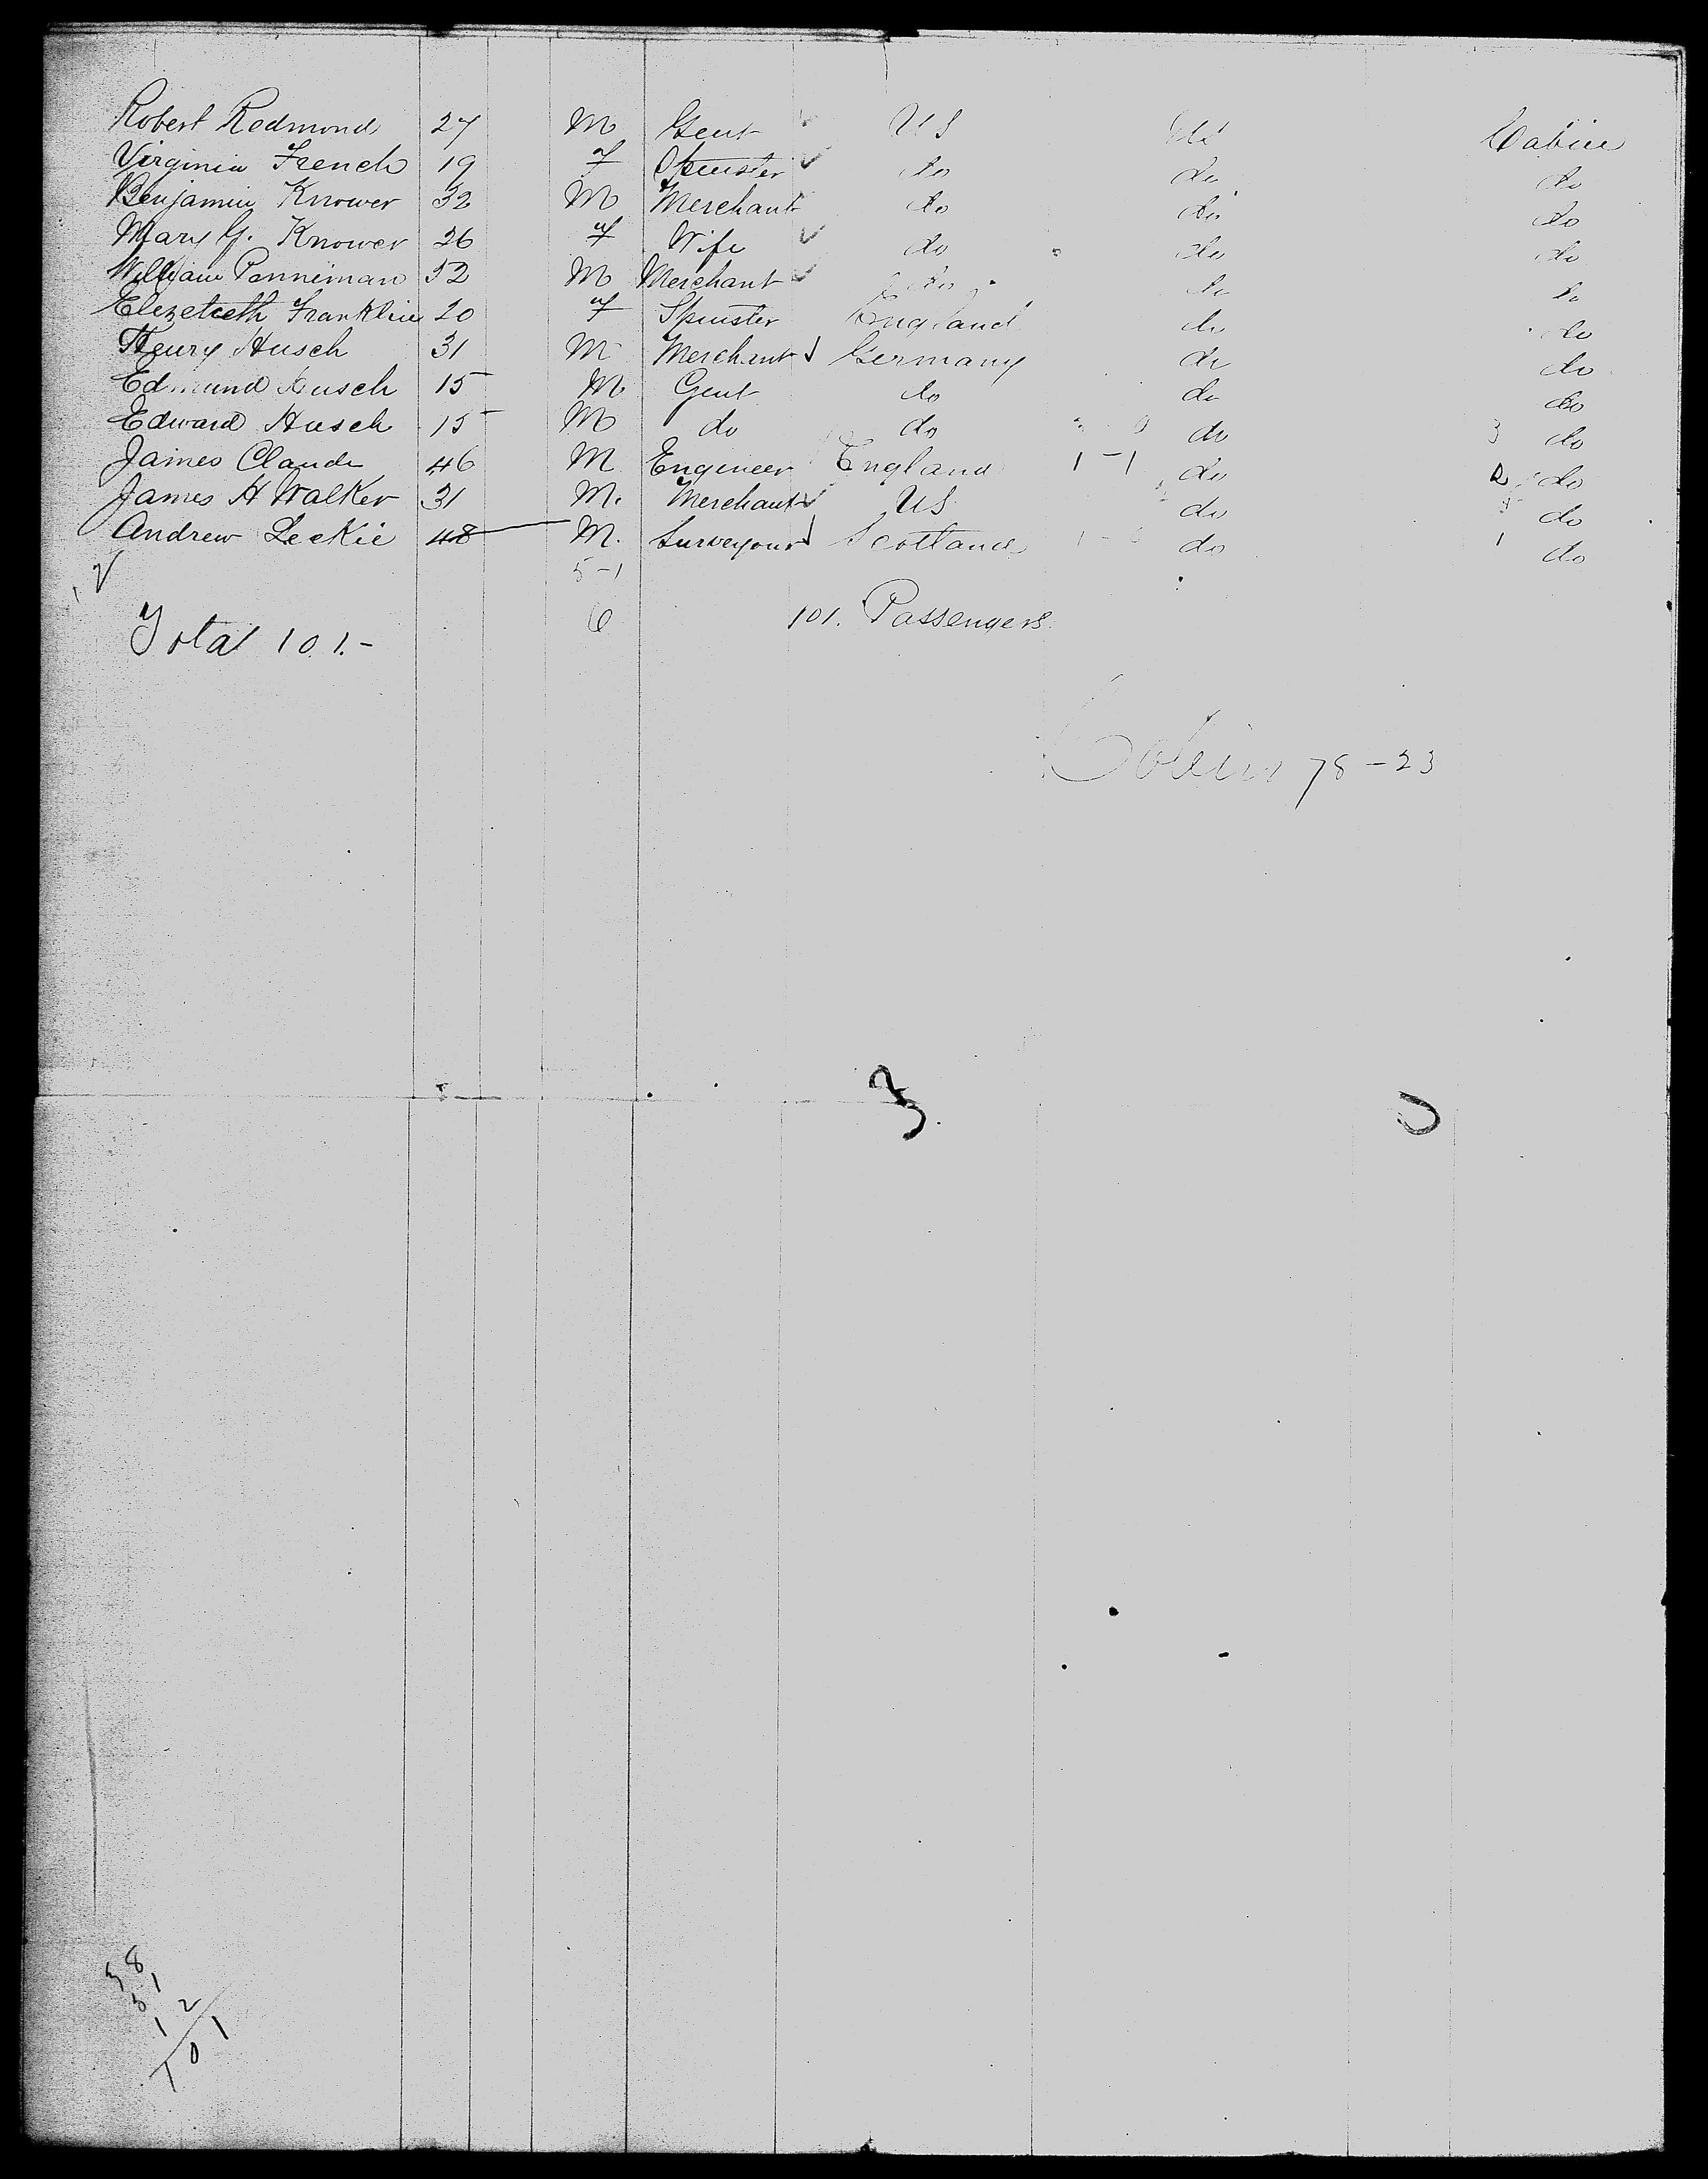 Robert Redmond 27 M Gent US US Cabin
Virginia French 19 f Spinster do do do
Benjamin Knower 32 M Merchant do do do
Mary G. Knower 26 f Wife do do do
William Penniman 52 M Merchant do do do
Elezebeth Franklin 20 f Spinster England do do
Henry Husch 31 M Merchant Germany do do
Edmund Husch 15 M Gent do do do
Edward Husch 15 M do do do 3 do
James Claude 46 M Engineer England 1-1 do 2 do
James H Walker 31 M. Merchant US do do
Andrew Leckie 48 M. Surveyour Scotland do 1 do
5-1
6 101. Passengers.
Total 101.-
Cabin 78-23
3
58
31
12
101